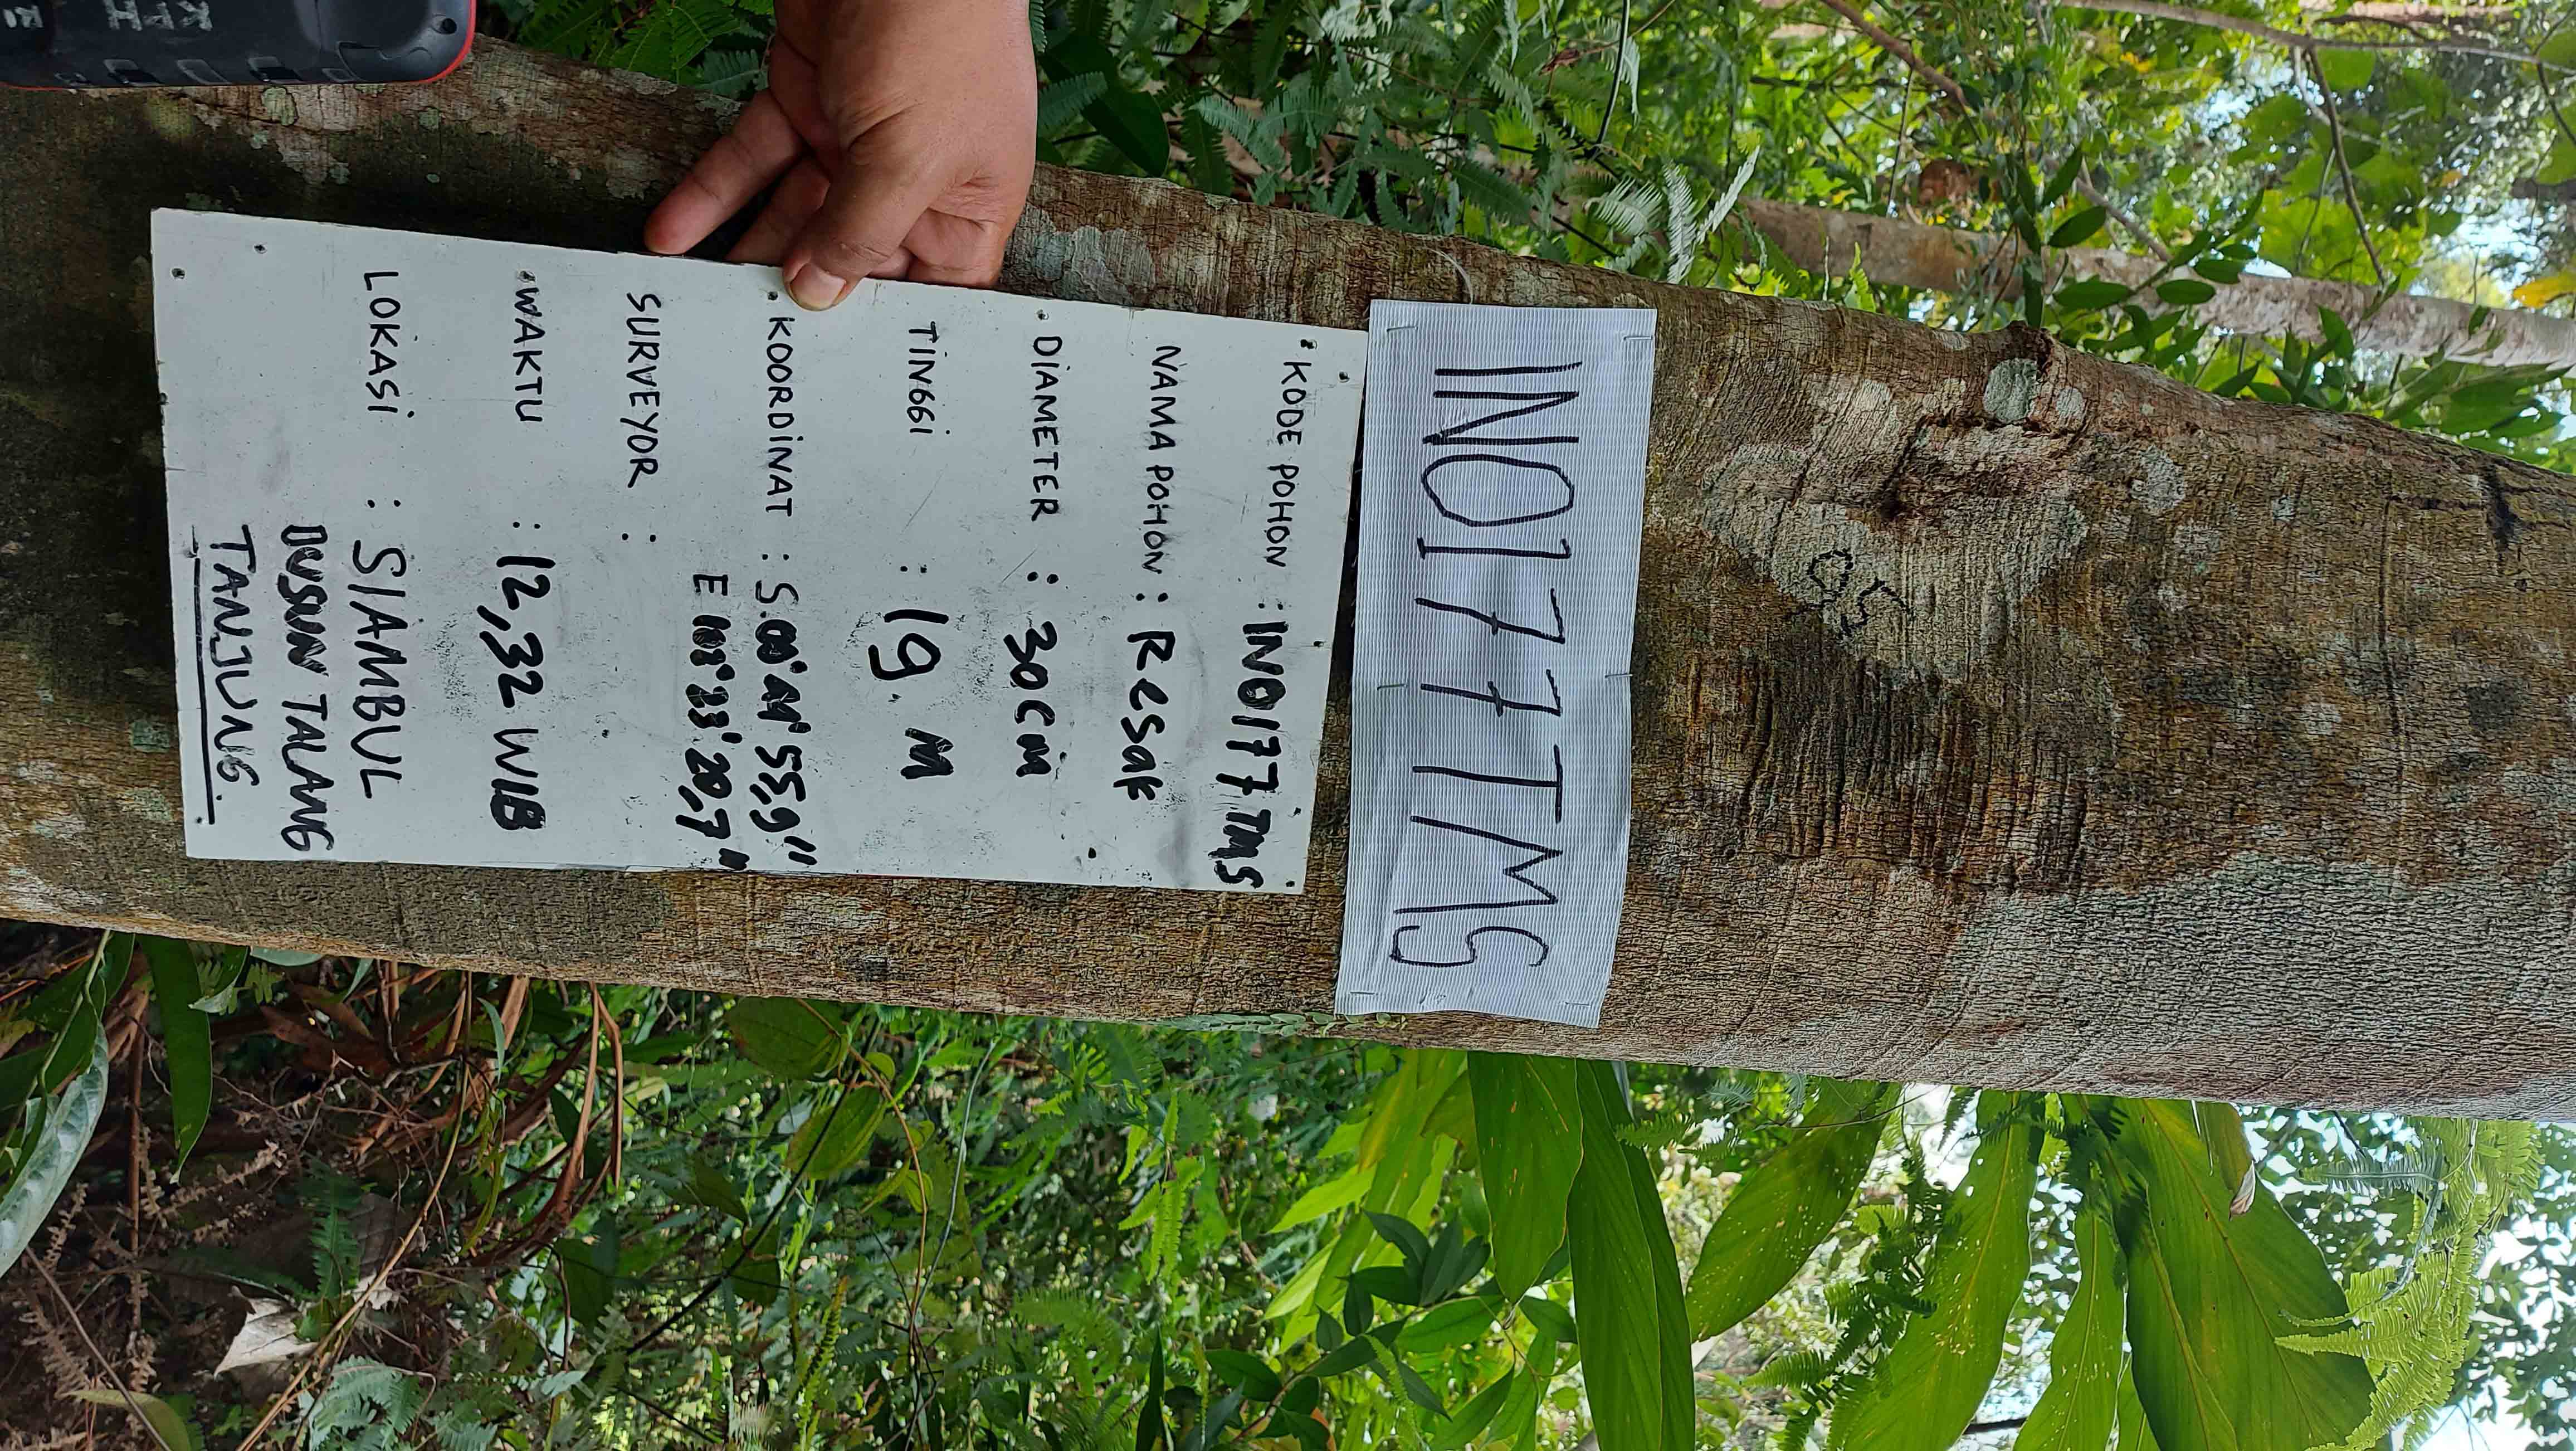 IN0177TMS
KODE POHON : IN0177 TMS
NAMA POHON : Resak
DiAMETER : 30CM
TiNGGi : 19. M
KOORDiNAT : S.00° 44' 55,9"
E 102° 33' 20,7"
SURVEYOR :
WAKTU : 12,32 WIB
LOKASi : SIAMBUL
DUSUN TALANG
TANJUNG.
05
KPH